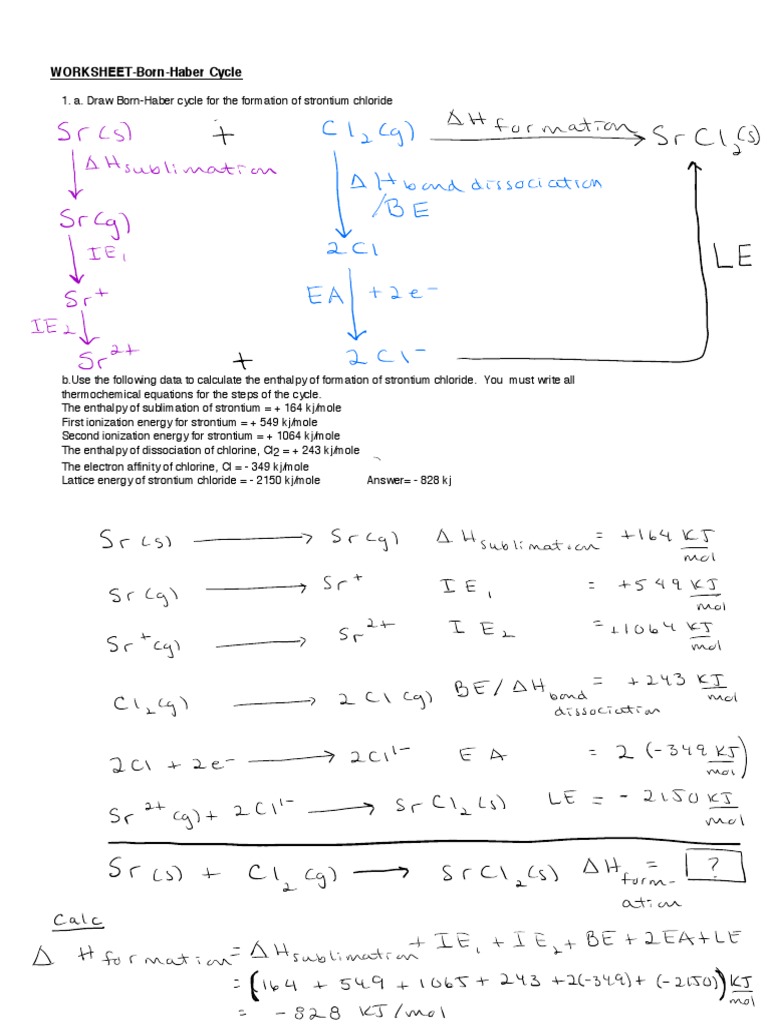 WORKSHEET-Born-Haber Cycle
1. a. Draw Born-Haber cycle for the formation of strontium chloride
Sr(s) + Cl₂(g) ΔH formation → SrCl₂(s)
↓ ΔH sublimation ↓ ΔH bond dissociation
/BE
Sr(g)
↓ IE₁ 2Cl LE
Sr⁺ EA ↓ +2e⁻
IE₂ ↓
Sr²⁺ + 2Cl⁻
b.Use the following data to calculate the enthalpy of formation of strontium chloride. You must write all
thermochemical equations for the steps of the cycle.
The enthalpy of sublimation of strontium = + 164 kj/mole
First ionization energy for strontium = + 549 kj/mole
Second ionization energy for strontium = + 1064 kj/mole
The enthalpy of dissociation of chlorine, Cl2 = + 243 kj/mole
The electron affinity of chlorine, Cl = - 349 kj/mole
Lattice energy of strontium chloride = - 2150 kj/mole Answer= - 828 kj
Sr(s) → Sr(g) ΔH sublimation = +164 KJ/mol
Sr(g) → Sr⁺ IE₁ = +549 KJ/mol
Sr⁺(g) → Sr²⁺ IE₂ = +1064 KJ/mol
Cl₂(g) → 2Cl(g) BE/ΔH bond dissociation = +243 KJ/mol
2Cl + 2e⁻ → 2Cl¹⁻ EA = 2(-349 KJ/mol)
Sr²⁺(g) + 2Cl¹⁻ → SrCl₂(s) LE = -2150 KJ/mol
Sr(s) + Cl₂(g) → SrCl₂(s) ΔH formation = ?
Calc
ΔH formation = ΔH sublimation + IE₁ + IE₂ + BE + 2EA + LE
= (164 + 549 + 1065 + 243 + 2(-349) + (-2150)) KJ/mol
= -828 KJ/mol